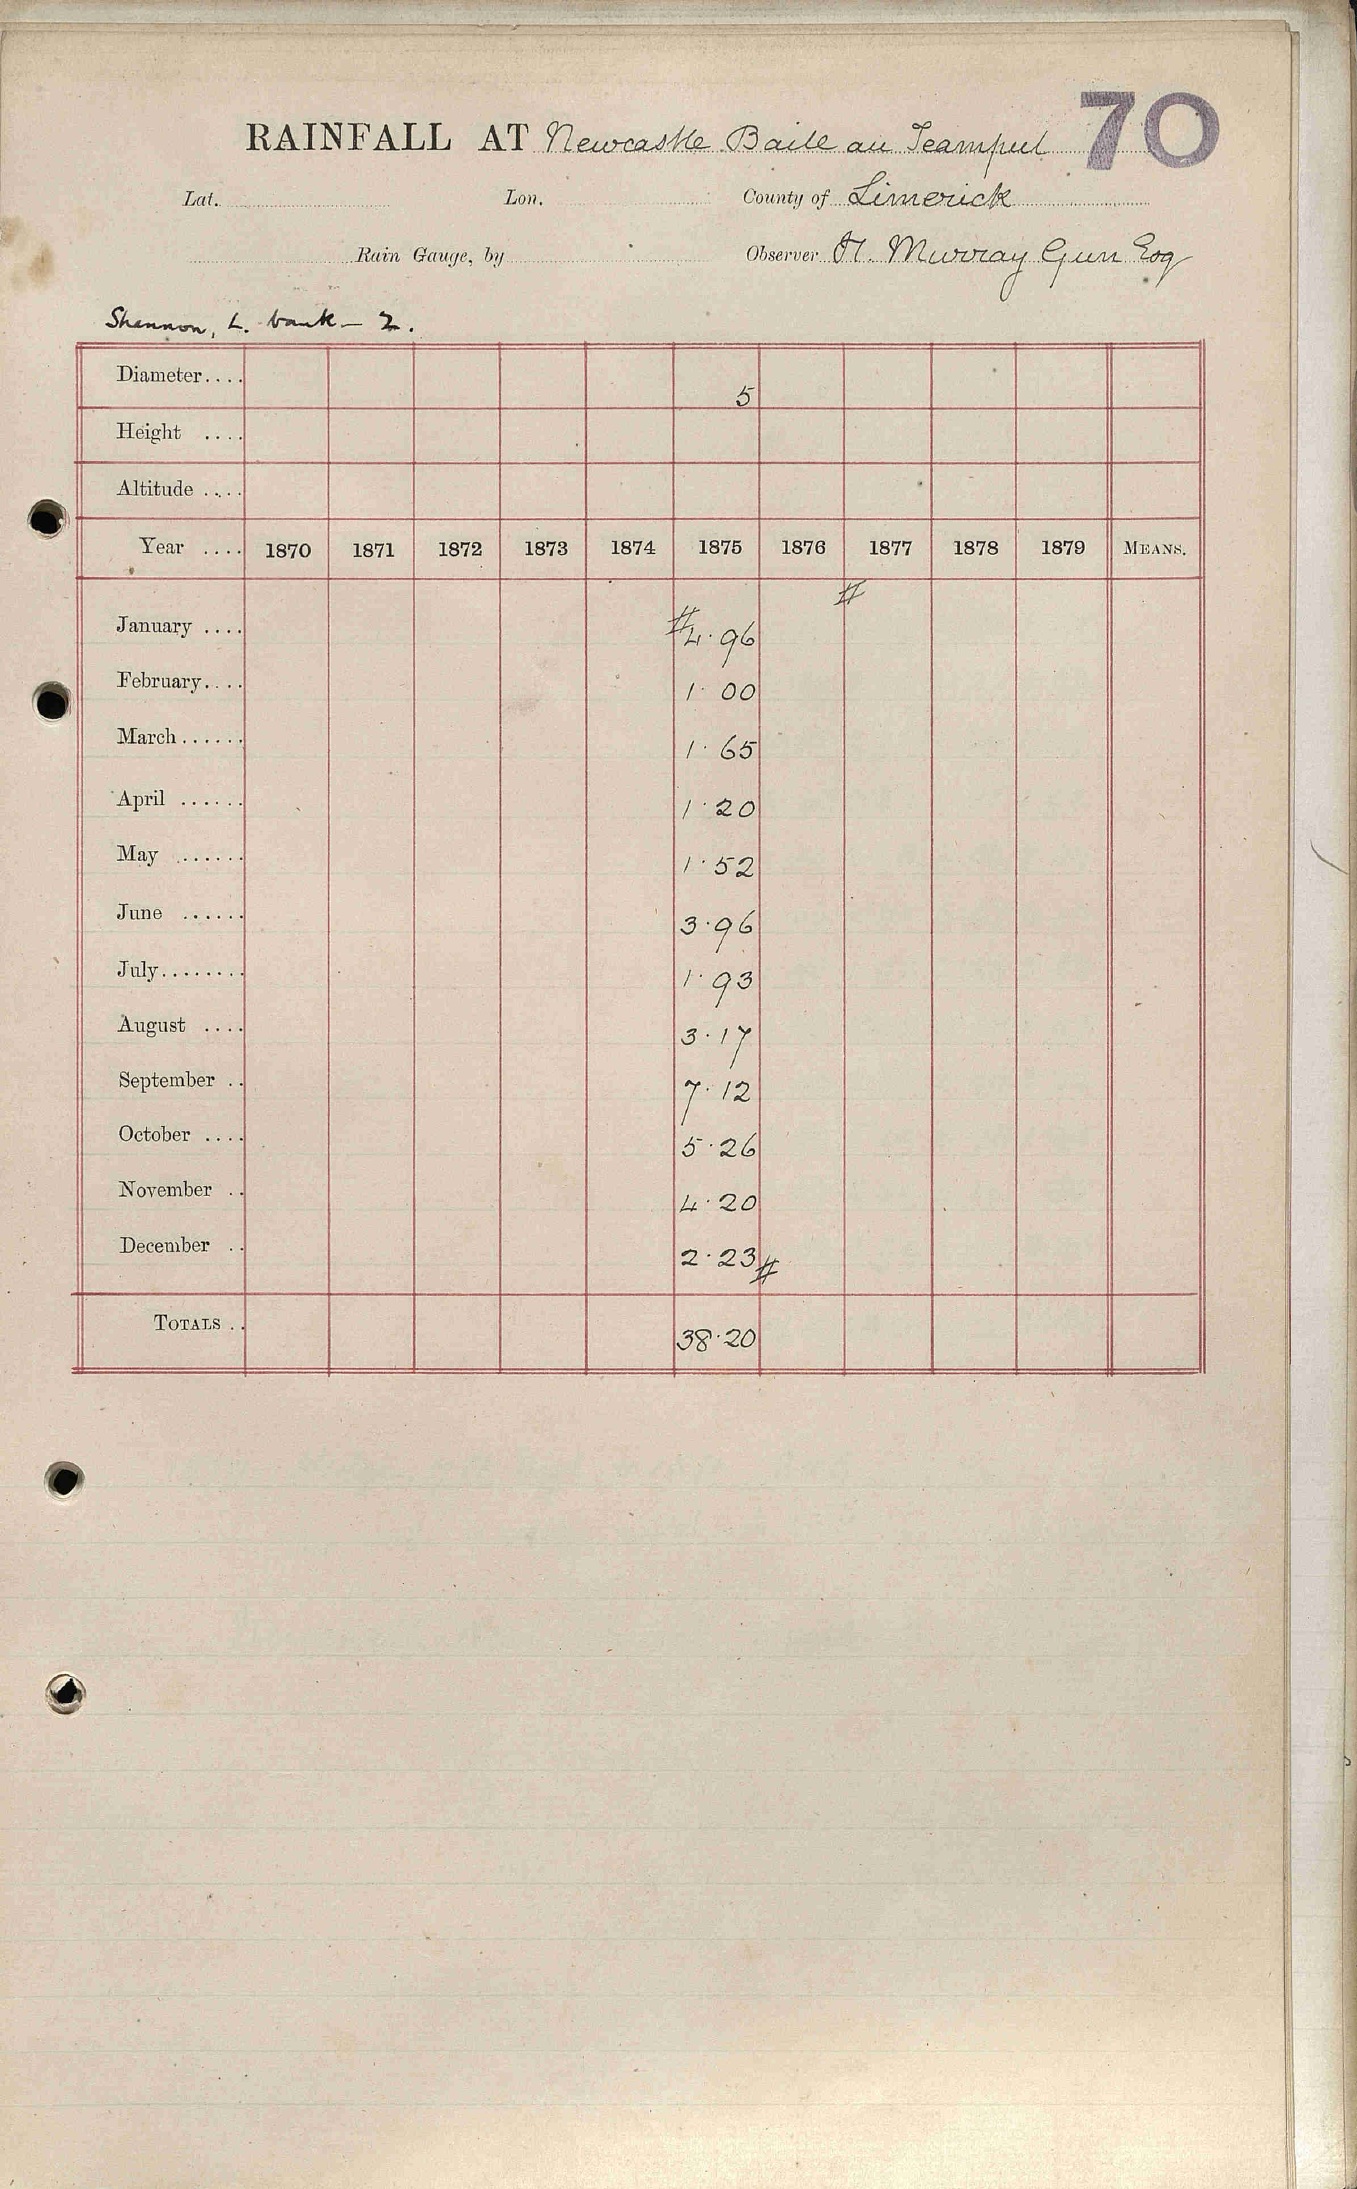 70
RAINFALL AT Newcastle Baile an Teampul
Lat. Lon. County of Limerick
Rain Gauge, by Observer H. Murray Gun Esq
Shannon, L. bank - 2.
Diameter.... 5
Height ....
Altitude ....
Year .... 1870 1871 1872 1873 1874 1875 1876 1877 1878 1879 MEANS.
#
January .... #4.96
February.... 1.00
March...... 1.65
April ...... 1.20
May ...... 1.52
June ...... 3.96
July........ 1.93
August .... 3.17
September .. 7.12
October .... 5.26
November .. 4.20
December .. 2.23#
TOTALS .. 38.20